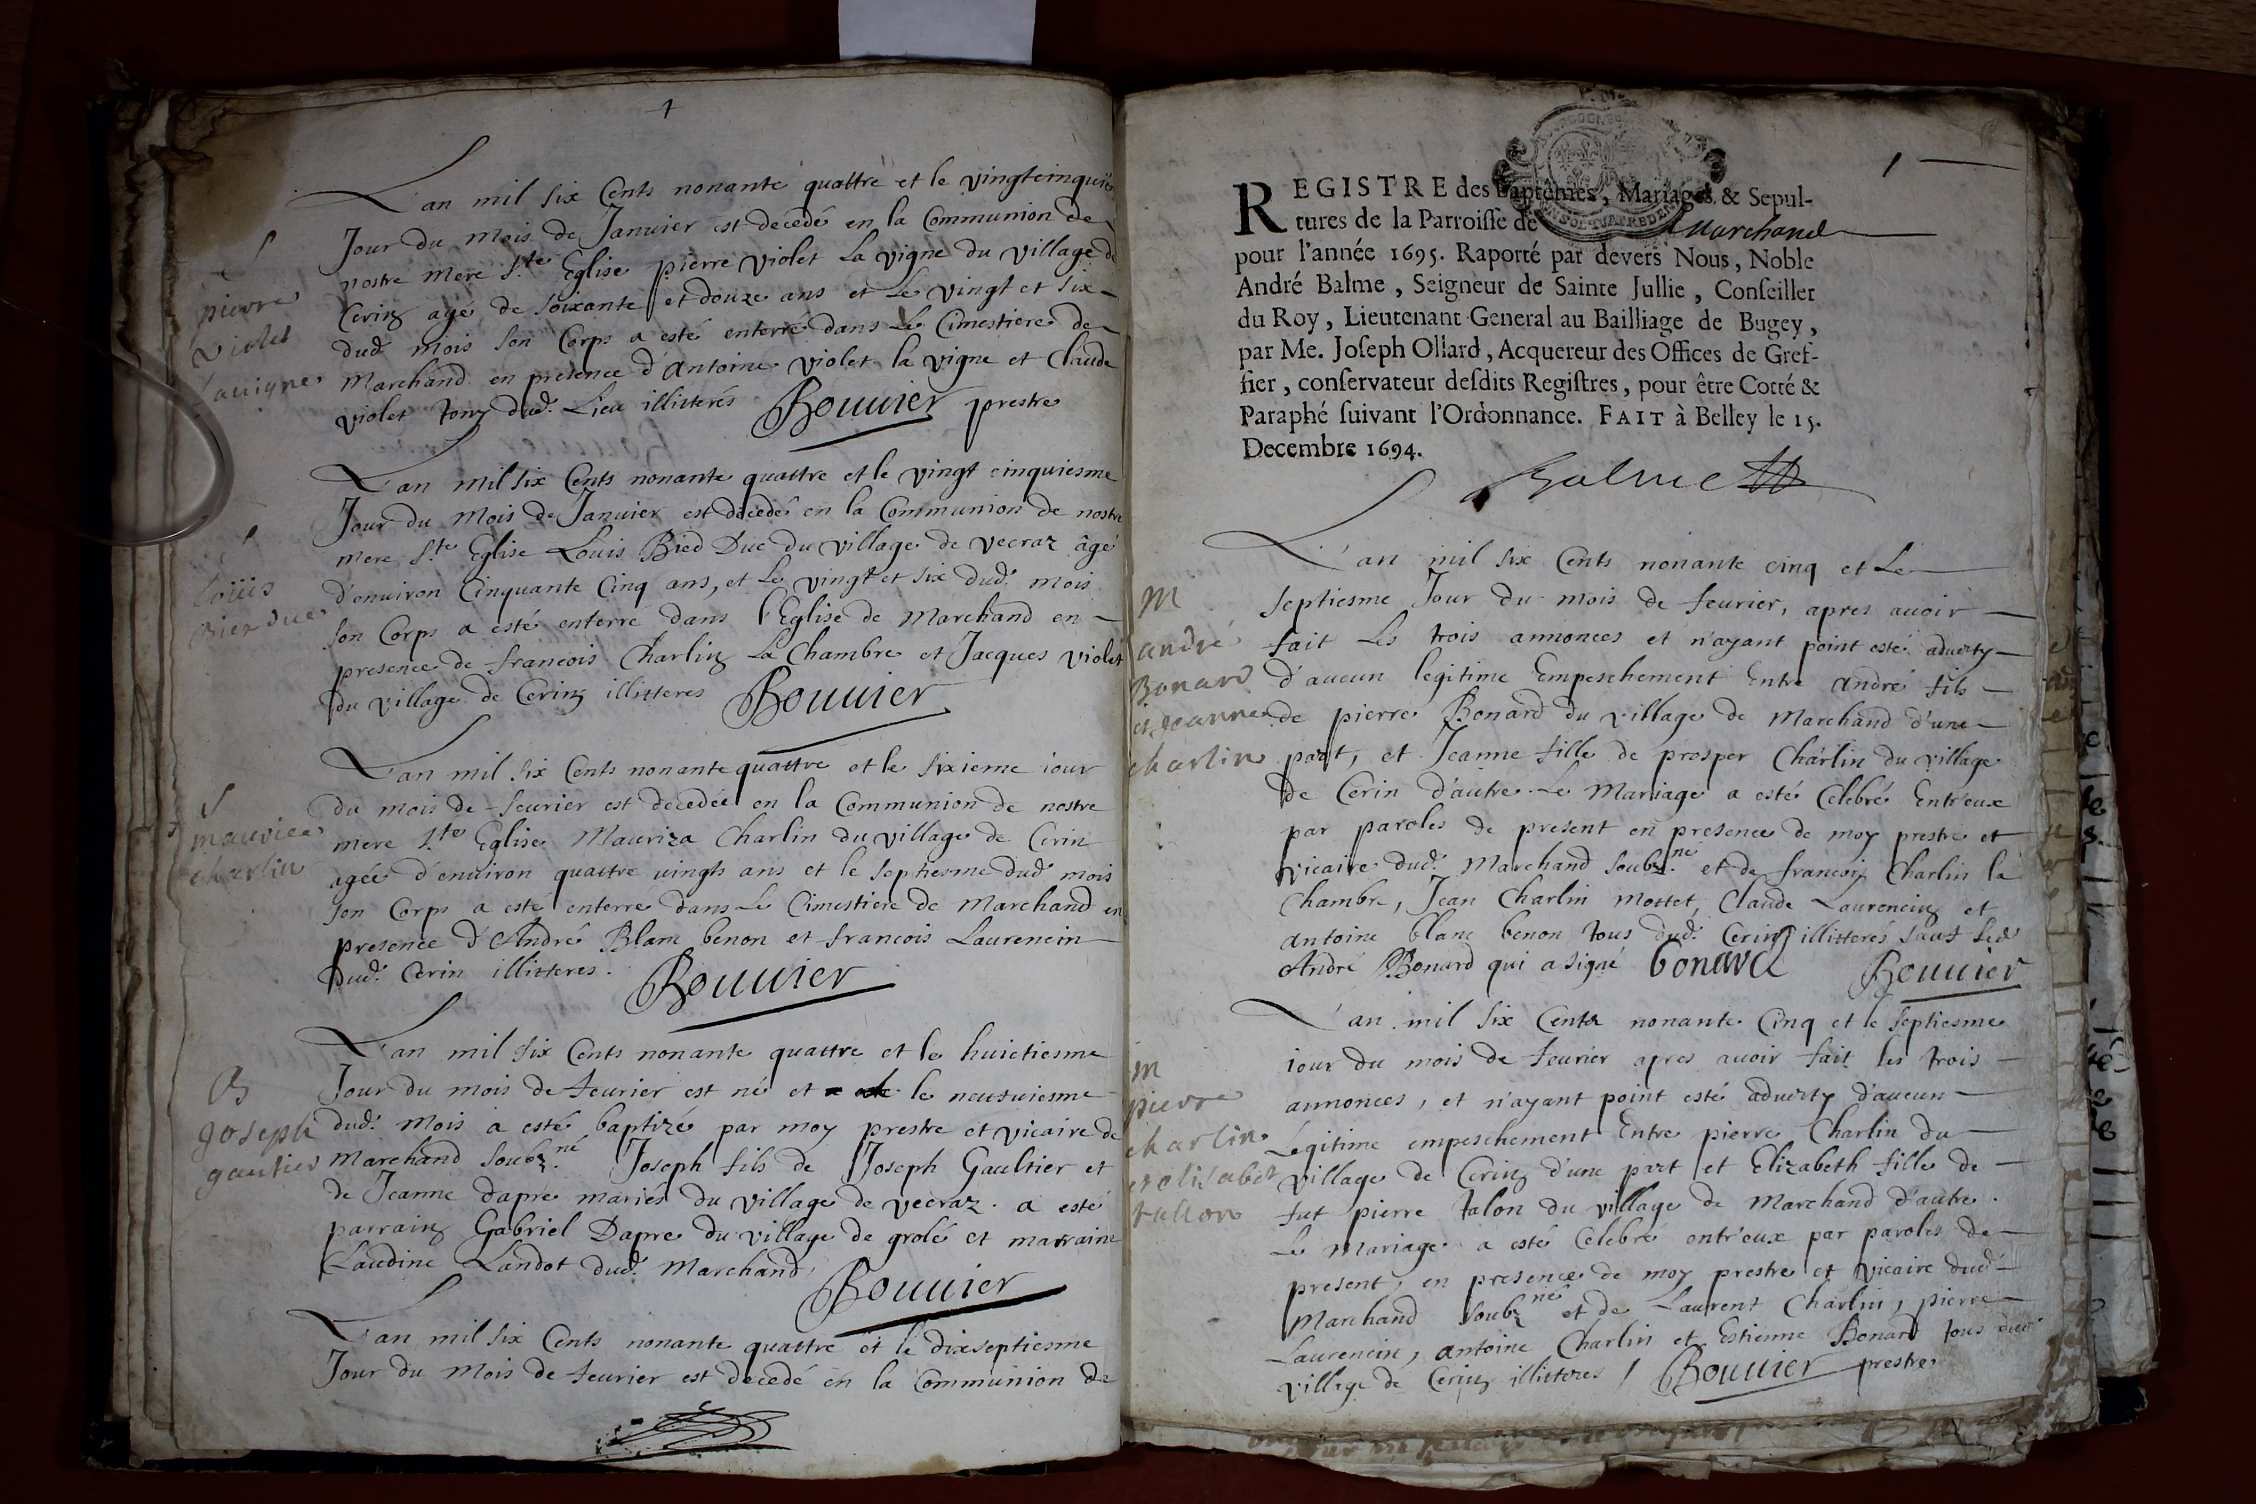 4
L'an mil six Cents nonante quattre et le vingtcinquies
Jour du mois de Januier est decedé en la Communion de
nostre mere Ste Eglise pierre violet La vigne du village de
Cerin agé de soixante et douze ans et Le vingt et six
dud. mois son Corps a esté enterré dans Le Cimestiere de
Marchand en presence d'Antoine violet la vigne et Claude
violet Tony dud. Lieu illitterés Bouuier prestre
S
pierre
violet
lauigne
L'an mil six Cents nonante quattre et le vingt cinquiesme
Jour du mois de Januier est decedé en la Communion de nostre
mere Ste Eglise Louis Bied Duc du village de vecraz âgé
d'enuiron Cinquante Cinq ans, et Le vingt et six dud. mois
son Corps a esté enterré dans l'Eglise de Marchand en
presence de francois Charlin La Chambre et Jacques violet
du village de Cerin illitteres Bouuier
S
loüis
L'an mil six Cents nonante quattre et le sixieme iour
du mois de feurier est decedée en la Communion de nostre
mere Ste Eglise Mauriza Charlin du village de Cerin
agée d'enuiron quattre uingts ans et le septiesme dud. mois
son Corps a esté enterré dans Le Cimestiere de Marchand en
presence d'André Blanc benon et francois Laurencin
dud. Cerin illitteres. Bouuier
S
maurice
charlin
L'an mil six Cents nonante quattre et le huictiesme
Jour du mois de feurier est né et le neufuiesme
dud. mois a esté baptizé par moy prestre et vicaire de
Marchand soubz.né Joseph fils de Joseph Gaultier et
de Jeanne dapre mariés du village de vecraz. a esté
parrain Gabriel Dapre du village de grolé et marraine
Claudine Landot dud. Marchand Bouuier
B
Joseph
gautier
L'an mil six Cents nonante quattre et le dixseptiesme
Jour du Mois de feurier est decedé en la Communion de
1
REGISTRE des Baptêmes, Mariages & Sepul-
tures de la Parroisse de Marchand
pour l'année 1695. Raporté par devers Nous, Noble
André Balme, Seigneur de Sainte Jullie, Conseiller
du Roy, Lieutenant General au Bailliage de Bugey,
par Me. Joseph Ollard, Acquereur des Offices de Gref-
fier, conservateur desdits Registres, pour être Cotté &
Paraphé suivant l'Ordonnance. FAIT à Belley le 15.
Decembre 1694.
Balme
L'an mil six Cents nonante cinq et Le
septiesme Jour du mois de feurier, apres auoir
fait Les trois annonces et n'ayant point esté aduerty
d'aucun legitime Empeschement Entre André fils
de pierre Bonard du village de Marchand d'une
part, et Jeanne fille de prosper Charlin du village
de Cerin d'autre. Le Mariage a esté Celebré Entr'eux
par paroles de present en presence de moy prestre et
vicaire dud. Marchand soubz.né et de francois Charlin la
Chambre, Jean Charlin Mottet, Claude Laurencin et
antoine blanc benon tous dud. Cerin illitterés sauf led.
André Bonard qui a signé bonard Bouuier
M
andré
Bonard
et jeanne
charlin
L'an mil six Cents nonante Cinq et le septiesme
iour du mois de feurier apres auoir fait les trois
annonces, et n'ayant point esté aduerty d'aucun
Legitime empeschement Entre pierre Charlin du
village de Cerin d'une part et Elizabeth fille de
fut pierre talon du village de Marchand d'autre.
Le Mariage a esté Celebré entr'eux par paroles de
present, en presence de moy prestre et vicaire dud.
Marchand soubz.né et de Laurent Charlin, pierre
Laurencin, antoine Charlin et Estienne Bonard tous dud.
village de Cerin illitteres / Bouuier prestre
M
pierre
charlin
et elisabet
tallon